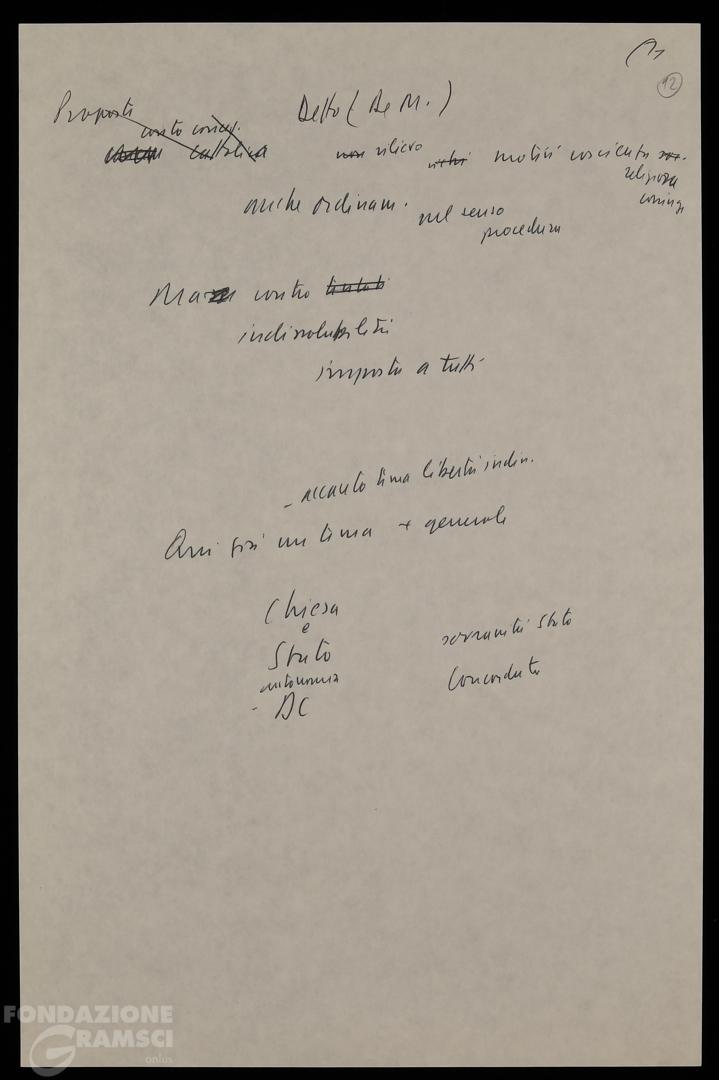 12
Proposta Detto (De M.)
conto concez.
cattolica non rilievo motivi coscienza
religiosa
coniugi
anche ordinam. nel senso
procedura
Ma contro
indissolubilità
imposta a tutti
- accanto tema libertà indiv.
Qui poi un tema + generale
Chiesa
e
Stato sovranità Stato
autonomia Concordato
- DC
FONDAZIONE
GRAMSCI
onlus